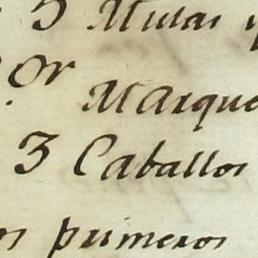 5 Mulas
Or Marque
3 Caballos
os primeros